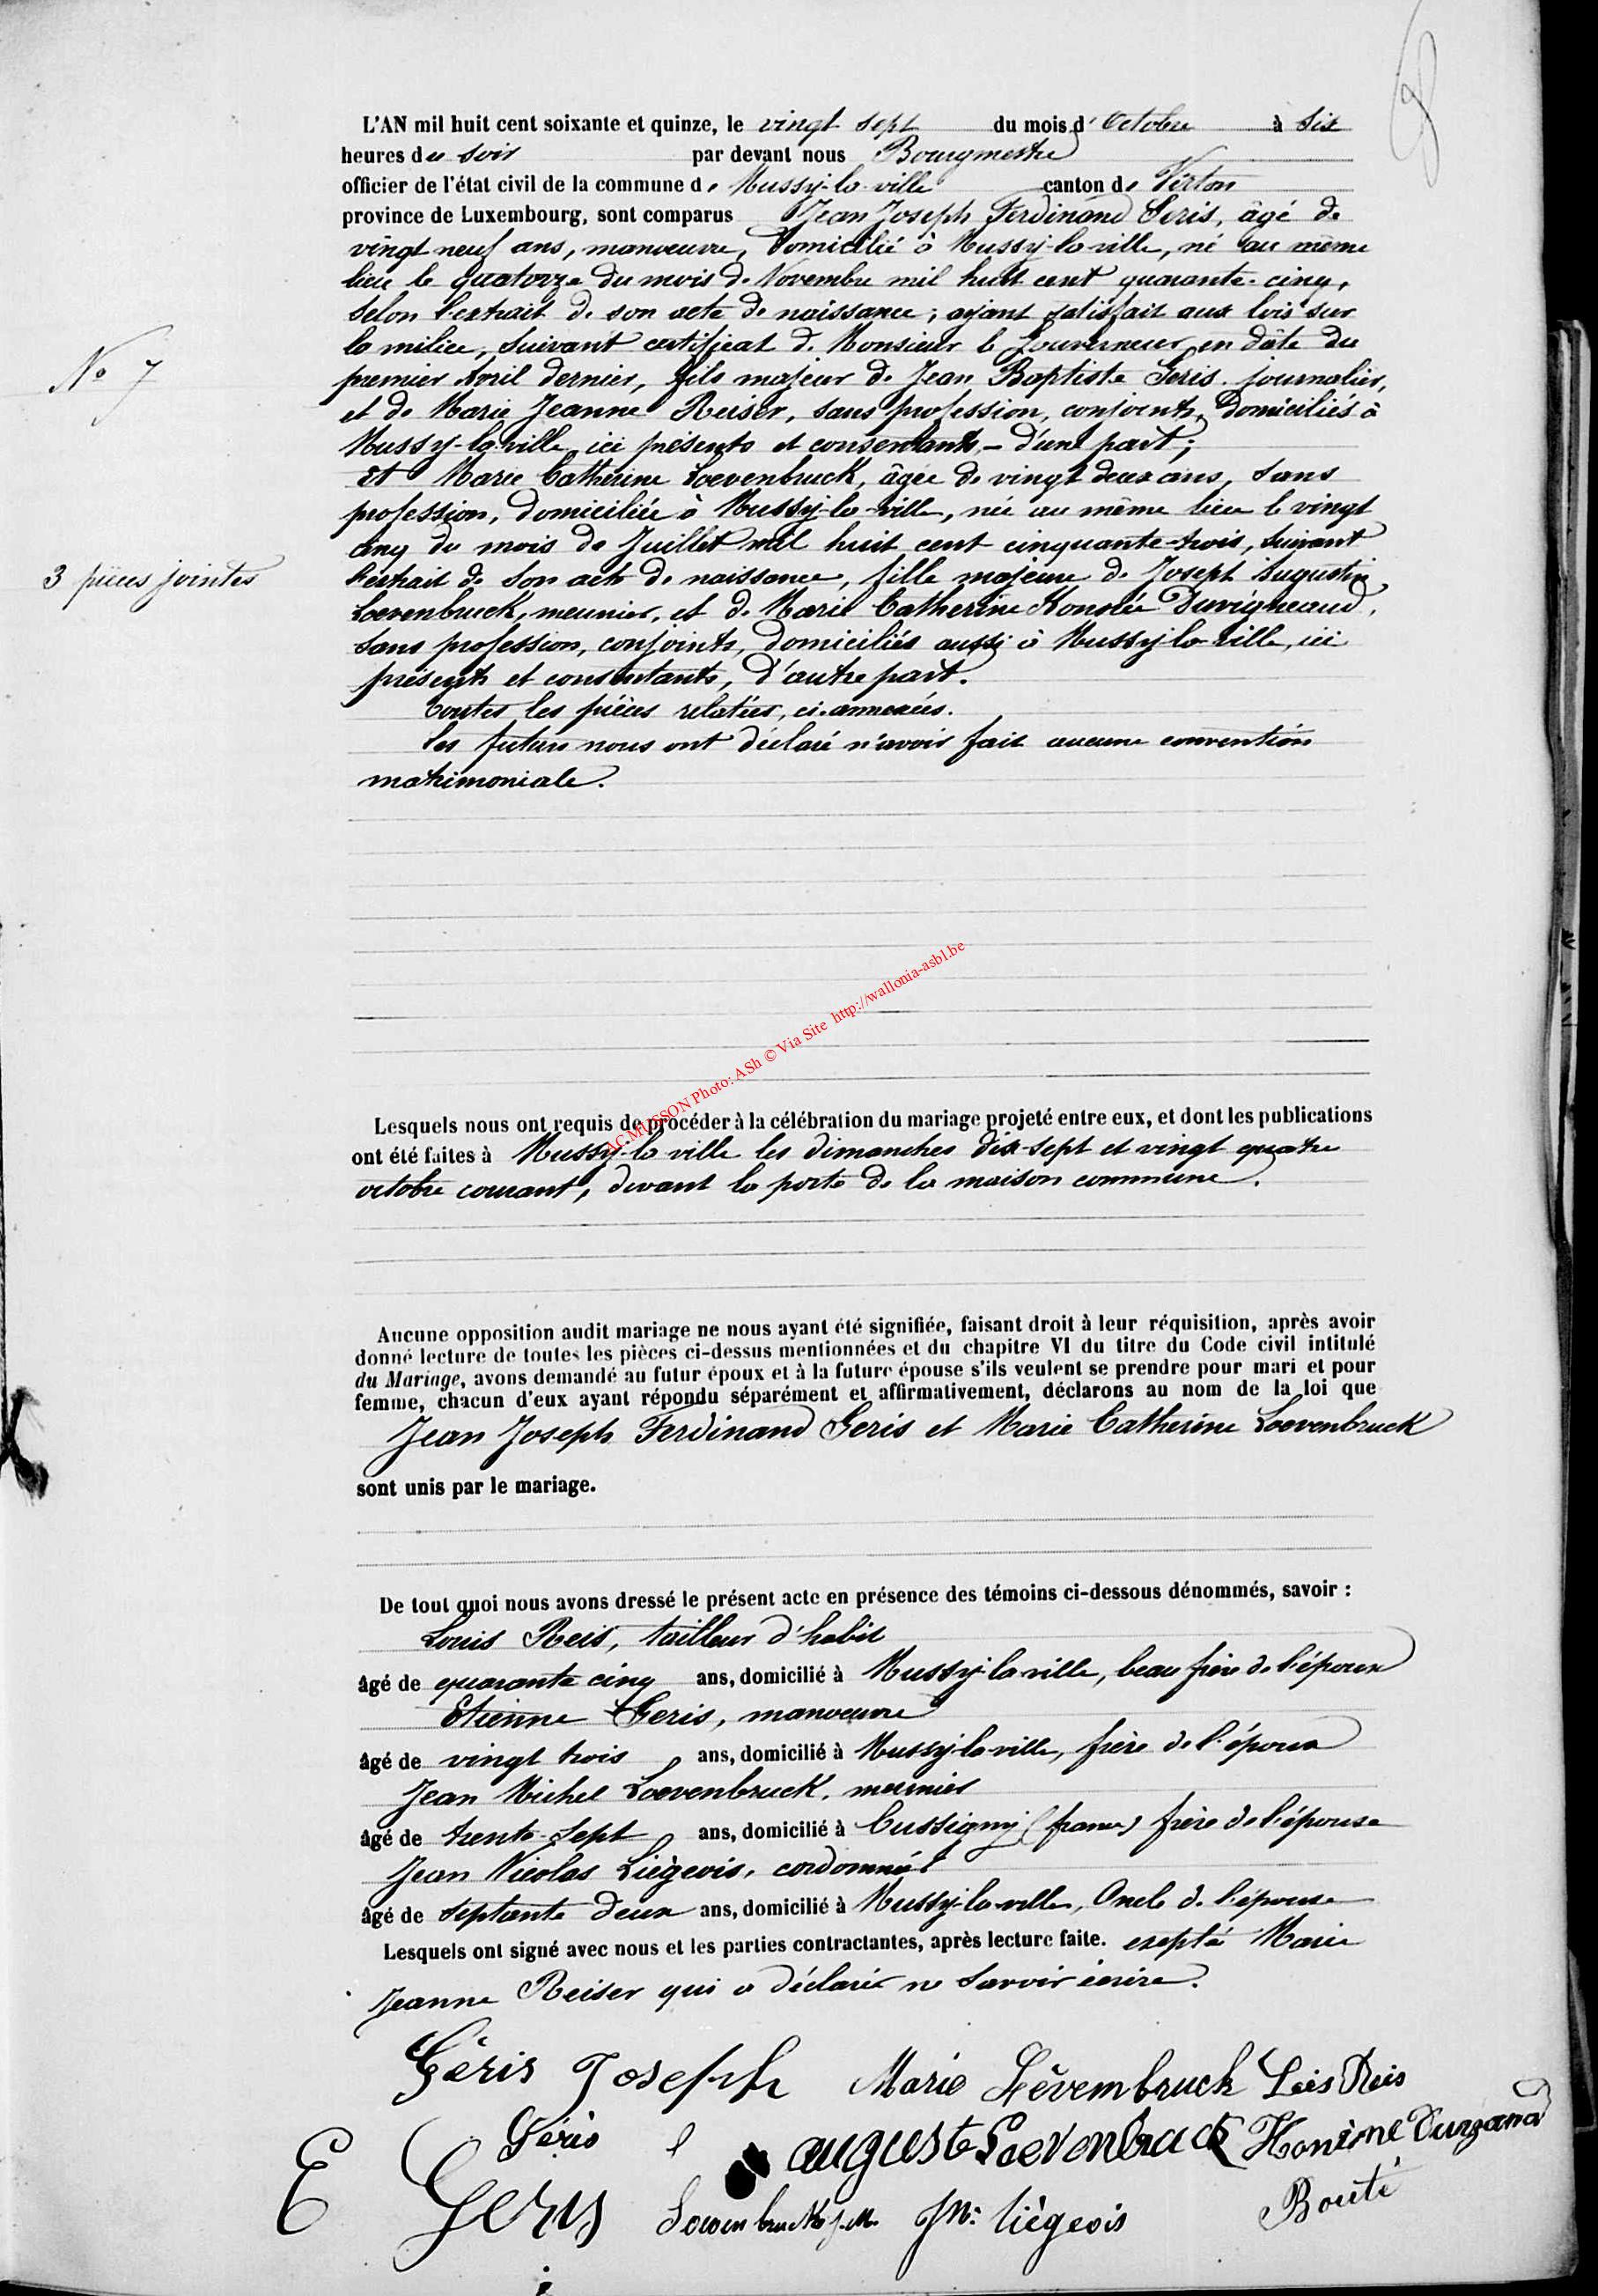 L'AN mil huit cent soixante et quinze, le vingt sept du mois d' Octobre à Six
heures du soir par devant nous Bourgmestre
officier de l'état civil de la commune de Mussy-la-ville canton de Virton
province de Luxembourg, sont comparus Jean Joseph Ferdinand Geris, âgé de
vingt neuf ans, manoeuvre, domicilié à Mussy-la-ville, né au même
lieu le quatorze du mois de Novembre mil huit cent quarante-cinq,
selon l'extrait de son acte de naissance; ayant satisfait aux lois sur
la milice, suivant certificat de Monsieur le Gouverneur en dâte du
premier Avril dernier, fils majeur de Jean Baptiste Geris journalier,
et de Marie Jeanne Reiser, sans profession, conjoints, domiciliés à
Mussy-la-ville, ici présents et consentants, - d'une part;
N° 7
Et Marie Catherine Loevenbruck, âgée de vingt deux ans, sans
profession, domiciliée à Mussy-la-ville, née au même lieu le vingt
cinq du mois de Juillet mil huit cent cinquante-trois, suivant
l'extrait de son acte de naissance, fille majeure de Joseph Augustin
3 pièces jointes
Loevenbruck, meunier, et de Marie Catherine Honorée Duvigneaud,
sans profession, conjoints, domiciliés aussi à Mussy-la-ville, ici
présents et consentants, d'autre part.
Toutes les pièces relatées, ci-annexées.
Les futurs nous ont déclaré n'avoir fait aucune convention
matrimoniale.
AC MUSSON Photo: ASh © Via Site http://wallonia-asbl.be
Lesquels nous ont requis de procéder à la célébration du mariage projeté entre eux, et dont les publications
ont été faites à Mussy-la-ville les dimanches dix-sept et vingt quatre
octobre courant, devant la porte de la maison commune.
Aucune opposition audit mariage ne nous ayant été signifiée, faisant droit à leur réquisition, après avoir
donné lecture de toutes les pièces ci-dessus mentionnées et du chapitre VI du titre du Code civil intitulé
du Mariage, avons demandé au futur époux et à la future épouse s'ils veulent se prendre pour mari et pour
femme, chacun d'eux ayant répondu séparément et affirmativement, déclarons au nom de la loi que
Jean Joseph Ferdinand Geris et Marie Catherine Loevenbruck
sont unis par le mariage.
De tout quoi nous avons dressé le présent acte en présence des témoins ci-dessous dénommés, savoir :
Louis Reis, tailleur d'habit
âgé de quarante cinq ans, domicilié à Mussy-la-ville, beau frère de l'époux
Etienne Geris, manoeuvre
âgé de vingt trois ans, domicilié à Mussy-la-ville, frère de l'époux
Jean Michel Loevenbruck, meunier
âgé de trente-sept ans, domicilié à Cussigny (france) frère de l'épouse
Jean Nicolas Liègeois, cordonnier
âgé de septante deux ans, domicilié à Mussy-la-ville, Oncle de l'épouse
Lesquels ont signé avec nous et les parties contractantes, après lecture faite. exepté Marie
Jeanne Reiser qui a déclaré ne savoir écrire.
Géris Joseph Marie Lèvembruck Reis
Géris auguste Loevenbruck
E Geris Loevenbruck J.M. JN: liègeois Bouté